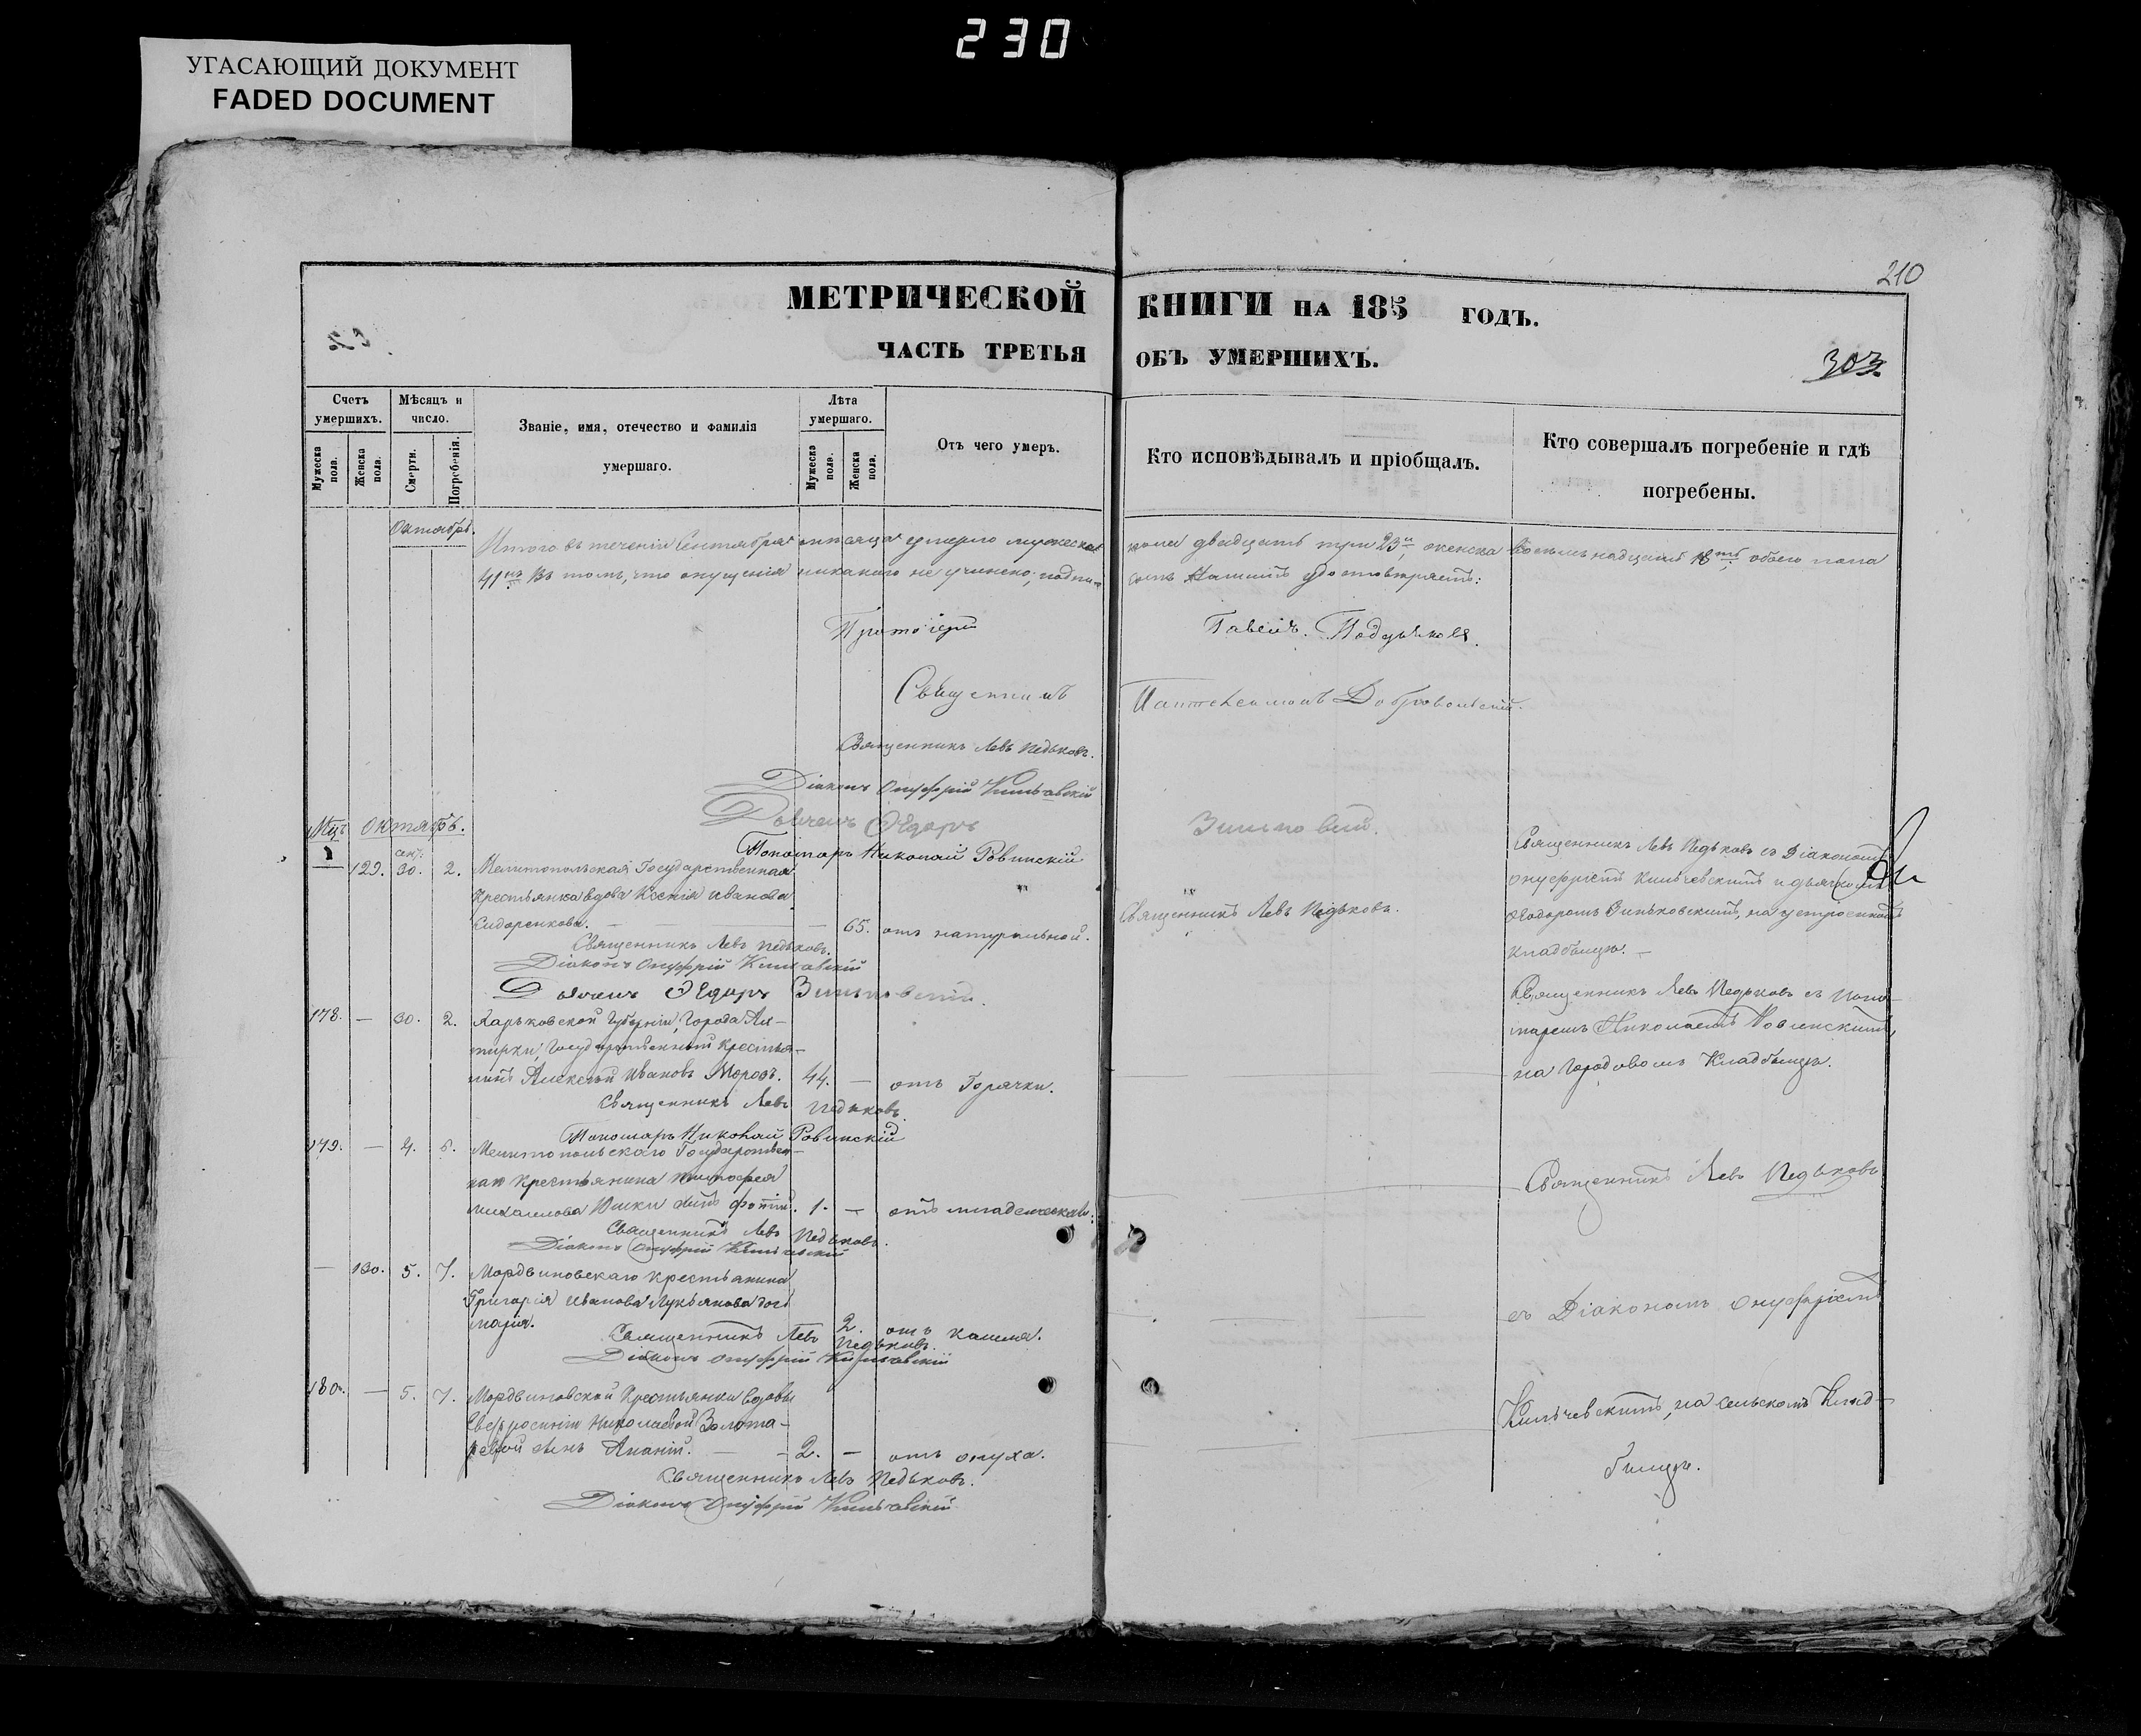 230
УГАСАЮЩИЙ ДОКУМЕНТ
FADED DOCUMENT
210
МЕТРИЧЕСКОЙ КНИГИ НА 185 ГОДЪ.
ЧАСТЬ ТРЕТЬЯ ОБЪ УМЕРШИХЪ.
303
Счетъ умершихъ.
Мужеска пола.
Женска пола.
Мѣсяцъ и число.
Смерти.
Погребенія.
Званіе, имя, отечество и фамилія умершаго.
Лѣта умершаго.
Мужеска пола.
Женска пола.
Отъ чего умеръ.
Кто исповѣдывалъ и пріобщалъ.
Кто совершалъ погребеніе и гдѣ погребены.
Октябрь.
Итого въ теченіи Сентября мѣсяца умерло мужеска пола двадцать три 23 женска восемьнадцать 18 обоего пола
41 Въ томъ, что опущенія никакого не учинено, подписомъ Нашимъ удостовѣряемъ:
Протоіерей
Священникъ Пантелеимонъ Добровольскій.
Священникъ Левъ Педьковъ.
Діаконъ Онуфрій Кильчевскій
Ѳедоръ Зиньковскій.
Пономарь Николай Ровинскій
Мцъ Октябрь.
129. сен: 30. 2. Мелитопольская Государственная
Крестьянка вдова Ксенія Иванова
Сидоренкова. 65. отъ натуральной.
Священникъ Левъ Педьковъ.
Священникъ Левъ Педьковъ съ Діакономъ
Онуфріемъ Кильчевскимъ и дьячкомъ
Ѳеодоромъ Зиньковскимъ, на
кладбищѣ.
Священникъ Левъ Педьковъ.
Діаконъ Онуфрій Кильчевскій
Ѳедоръ Зиньковскій.
178. — 30. 2. Харьковской Губерніи, Города Ах-
тырки, Государственный Крестья-
нинъ Алексѣй Ивановъ Морозъ. 44. — отъ Горячки.
Священникъ Левъ Педьковъ съ Поно-
маремъ Николаемъ Ровинскимъ,
на Городовомъ Кладбищѣ.
Священникъ Левъ Педьковъ.
Пономарь Николай Ровинскій
179. — 4. 6. Мелитопольскаго Государствен-
наго Крестьянина
Михаилова Юшки сынъ 1. — отъ младенческой.
Священникъ Левъ Педьковъ
Священникъ Левъ Педьковъ.
Діаконъ Онуфрій Кильчевскій
— 130. 5. 7. Мордвиновскаго Крестьянина
Григорія Иванова Лукьянова дочь
Марія. 2. отъ кашля.
съ Діакономъ Онуфріемъ
Священникъ Левъ Педьковъ.
Діаконъ Онуфрій Кильчевскій
180. — 5. 7. Мордвиновской Крестьянки вдовы
Евфросиніи Николаевой Золота-
ревой сынъ Ананій. — 2. — отъ опуха.
Кильчевскимъ, на Сельскомъ Клад-
бищѣ.
Священникъ Левъ Педьковъ.
Діаконъ Онуфрій Кильчевскій